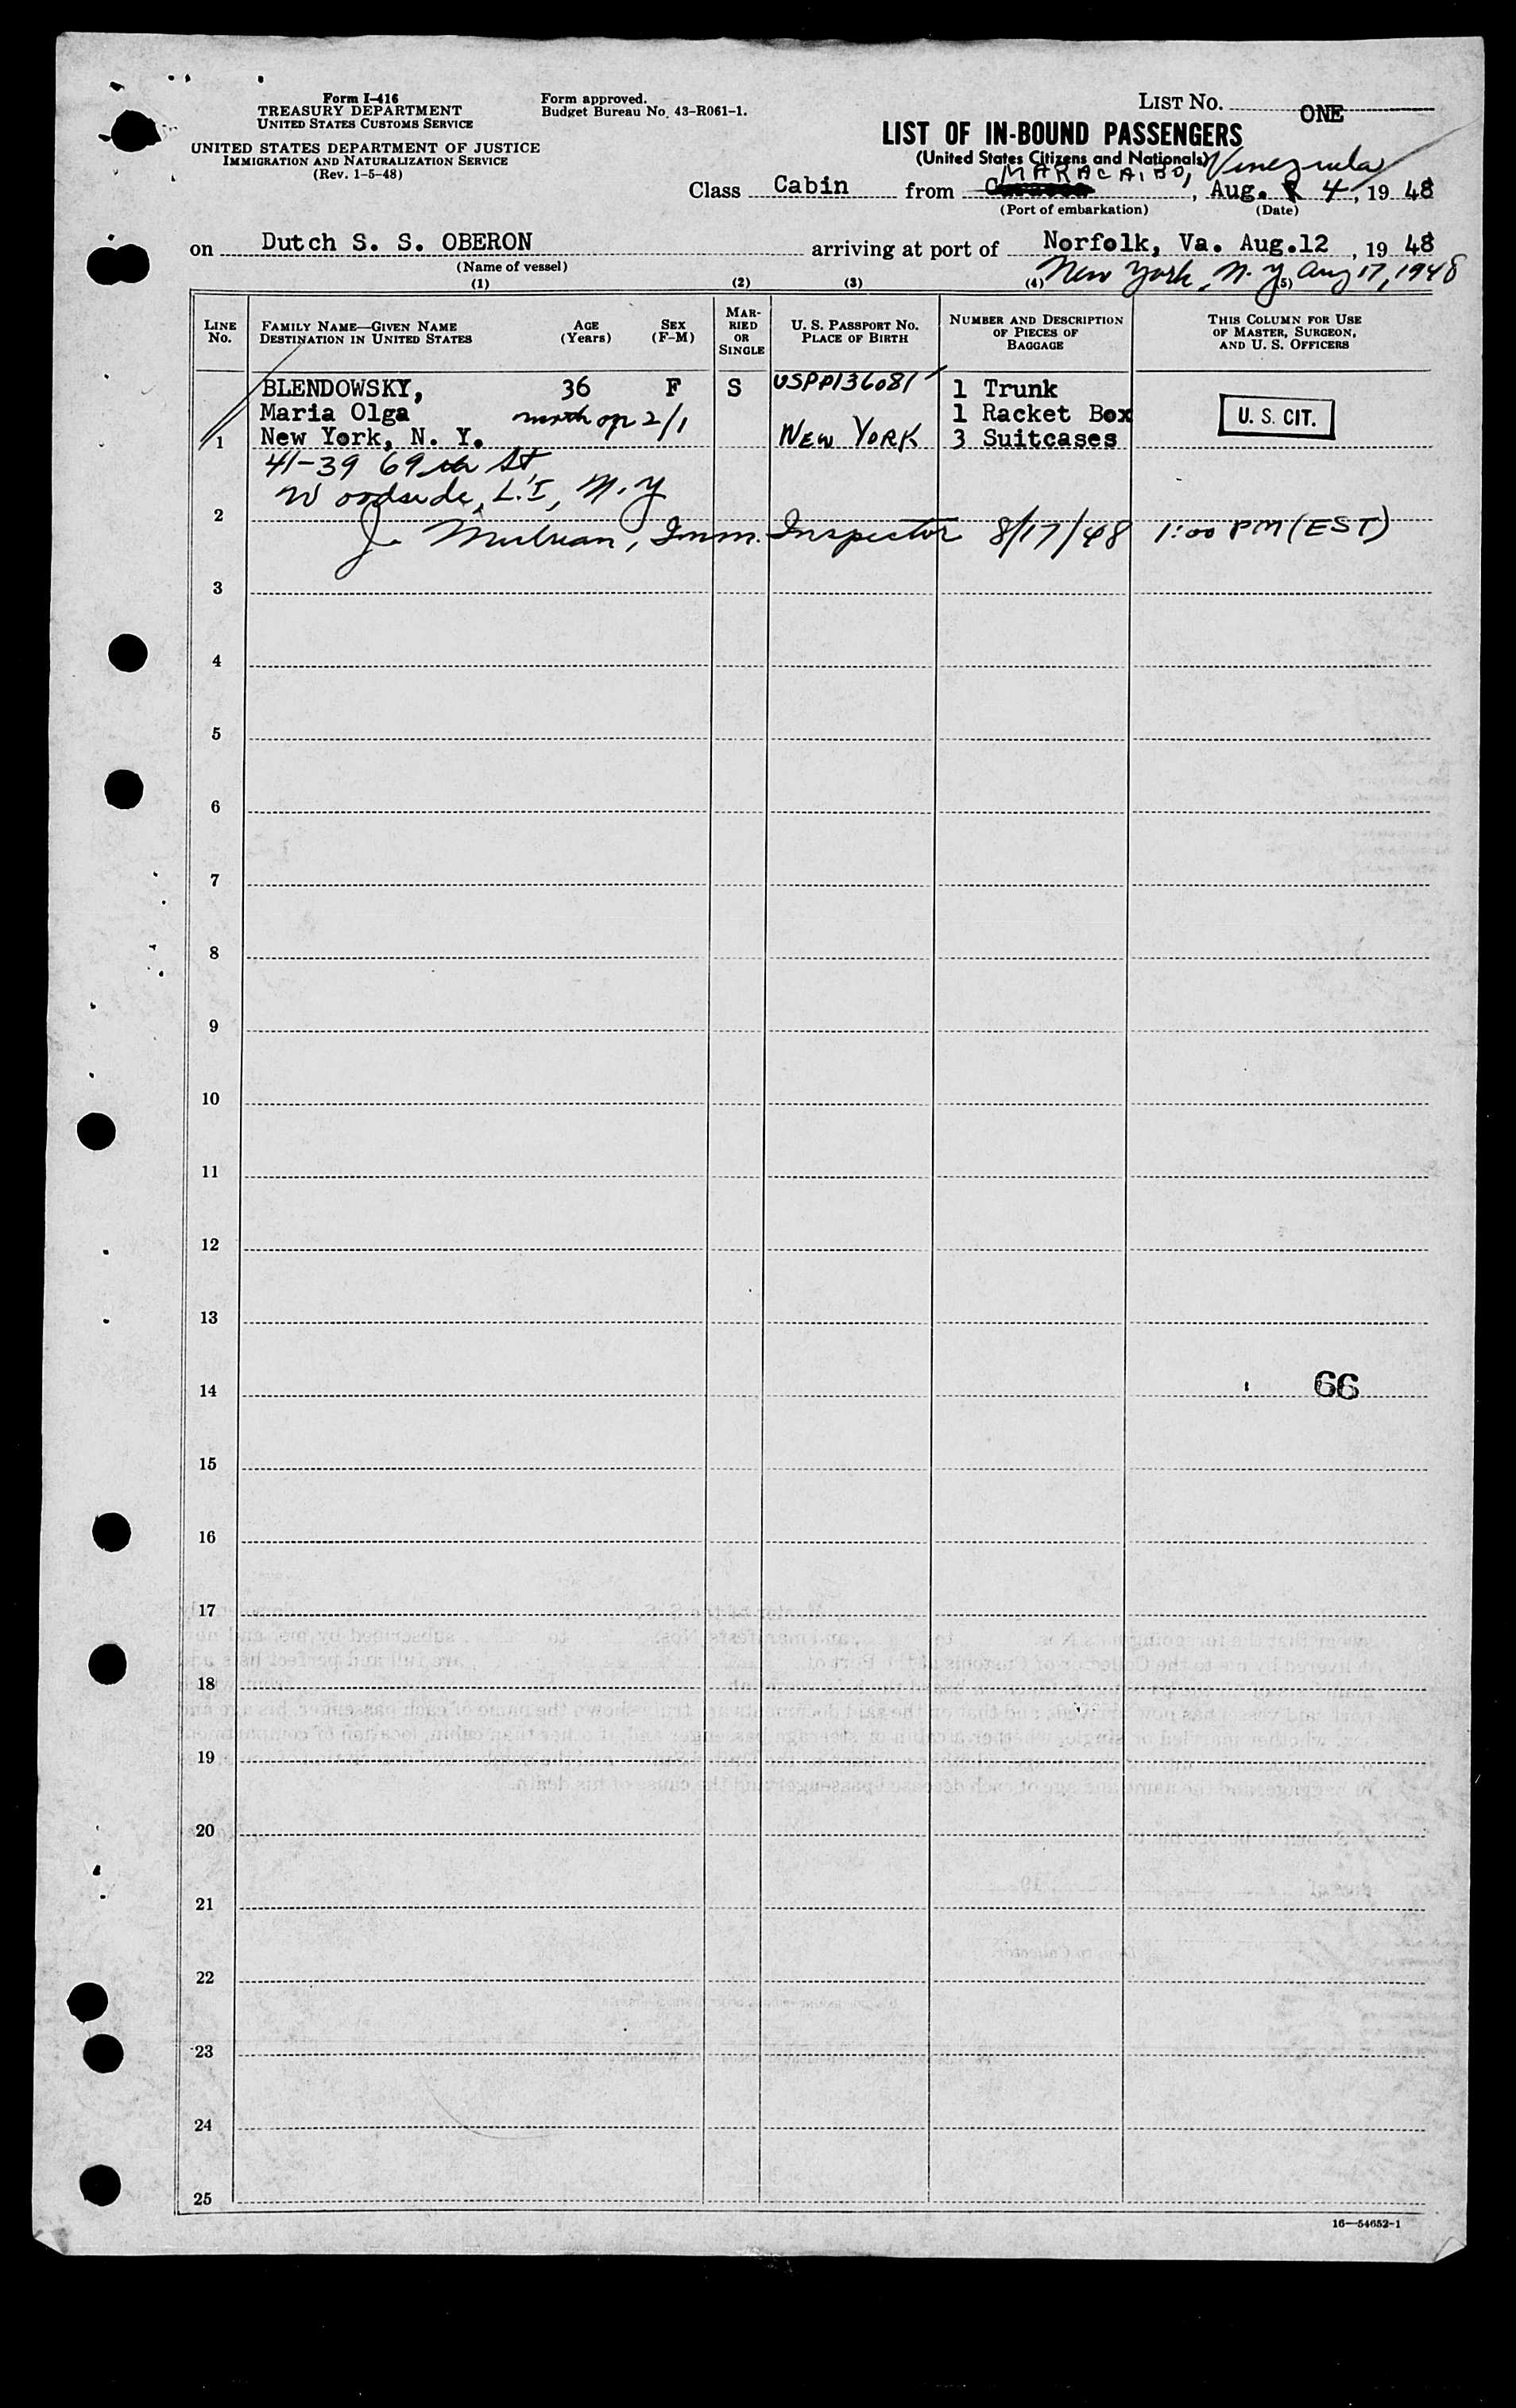 Form I-416
TREASURY DEPARTMENT
UNITED STATES CUSTOMS SERVICE
UNITED STATES DEPARTMENT OF JUSTICE
IMMIGRATION AND NATURALIZATION SERVICE
(Rev. 1-5-48)
Form approved.
Budget Bureau No. 43-R061-1.
LIST NO. ONE
LIST OF IN-BOUND PASSENGERS
(United States Citizens and Nationals)
Class Cabin from MARACAIBO, Venezuela, Aug. 4, 19 48
(Port of embarkation) (Date)
on Dutch S. S. OBERON arriving at port of Norfolk, Va. Aug.12, 19 48
(Name of vessel)
New York, N.Y. Aug 17, 1948
(1) (2) (3) (4) (5)
LINE No.
FAMILY NAME—GIVEN NAME
DESTINATION IN UNITED STATES
AGE (Years)
SEX (F-M)
MARRIED OR SINGLE
U. S. PASSPORT NO.
PLACE OF BIRTH
NUMBER AND DESCRIPTION OF PIECES OF BAGGAGE
THIS COLUMN FOR USE OF MASTER, SURGEON, AND U. S. OFFICERS
BLENDOWSKY, 36 F S USPP136081 1 Trunk
Maria Olga 2/1 1 Racket Box U. S. CIT.
1 New York, N. Y. NEW YORK 3 Suitcases
41-39 69th St
Woodside, L.I, N.Y
2
Imm. Inspector 8/17/48 1:00 PM (EST)
3
4
5
6
7
8
9
10
11
12
13
14 66
15
16
17
18
19
20
21
22
23
24
25
16—54652-1